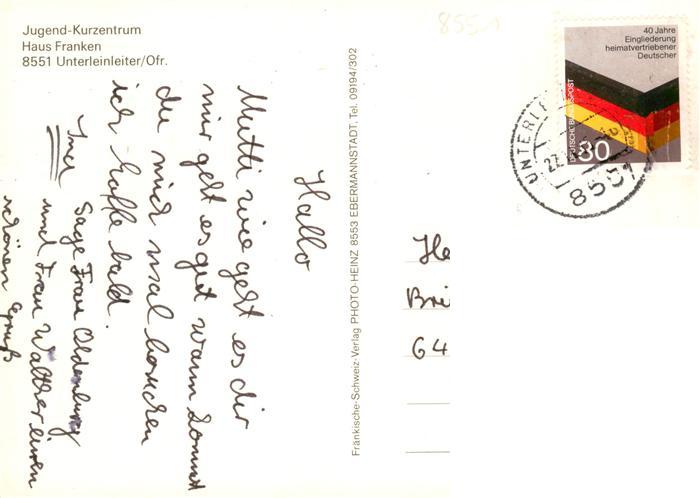 Jugend-Kurzentrum
Haus Franken
8551 Unterleinleiter/Ofr.
Hallo
Mutti wie geht es dir
mir geht es gut wann kommst
du mich mal besuchen
ich hoffe bald.
Sage Frau Oldenburg
und Frau Walther einen
schönen Gruß
Fränkische-Schweiz-Verlag PHOTO-HEINZ 8553 EBERMANNSTADT, Tel. 09194/302
8551
40 Jahre
Eingliederung
heimatvertriebener
Deutscher
DEUTSCHE BUNDESPOST
80
UNTERL
27.
8551
He
Bri
64